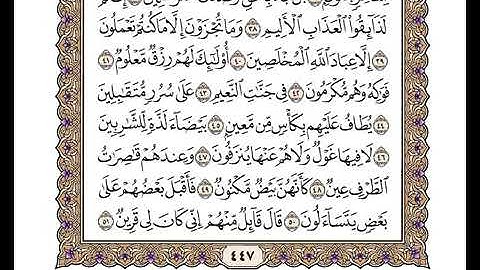 لَذَآئِقُواْ ٱلْعَذَابِ ٱلْأَلِيمِ ٣٨ وَمَا تُجْزَوْنَ إِلَّا مَا كُنتُمْ تَعْمَلُونَ
٣٩ إِلَّا عِبَادَ ٱللَّهِ ٱلْمُخْلَصِينَ ٤٠ أُوْلَٰٓئِكَ لَهُمْ رِزْقٌ مَّعْلُومٌ ٤١
فَوَٰكِهُ وَهُم مُّكْرَمُونَ ٤٢ فِي جَنَّٰتِ ٱلنَّعِيمِ ٤٣ عَلَىٰ سُرُرٍ مُّتَقَٰبِلِينَ
٤٤ يُطَافُ عَلَيْهِم بِكَأْسٍ مِّن مَّعِينٍ ٤٥ بَيْضَآءَ لَذَّةٍ لِّلشَّٰرِبِينَ
٤٦ لَا فِيهَا غَوْلٌ وَلَا هُمْ عَنْهَا يُنزَفُونَ ٤٧ وَعِندَهُمْ قَٰصِرَٰتُ
ٱلطَّرْفِ عِينٌ ٤٨ كَأَنَّهُنَّ بَيْضٌ مَّكْنُونٌ ٤٩ فَأَقْبَلَ بَعْضُهُمْ عَلَىٰ
بَعْضٍ يَتَسَآءَلُونَ ٥٠ قَالَ قَآئِلٌ مِّنْهُمْ إِنِّي كَانَ لِي قَرِينٌ ٥١
٤٤٧